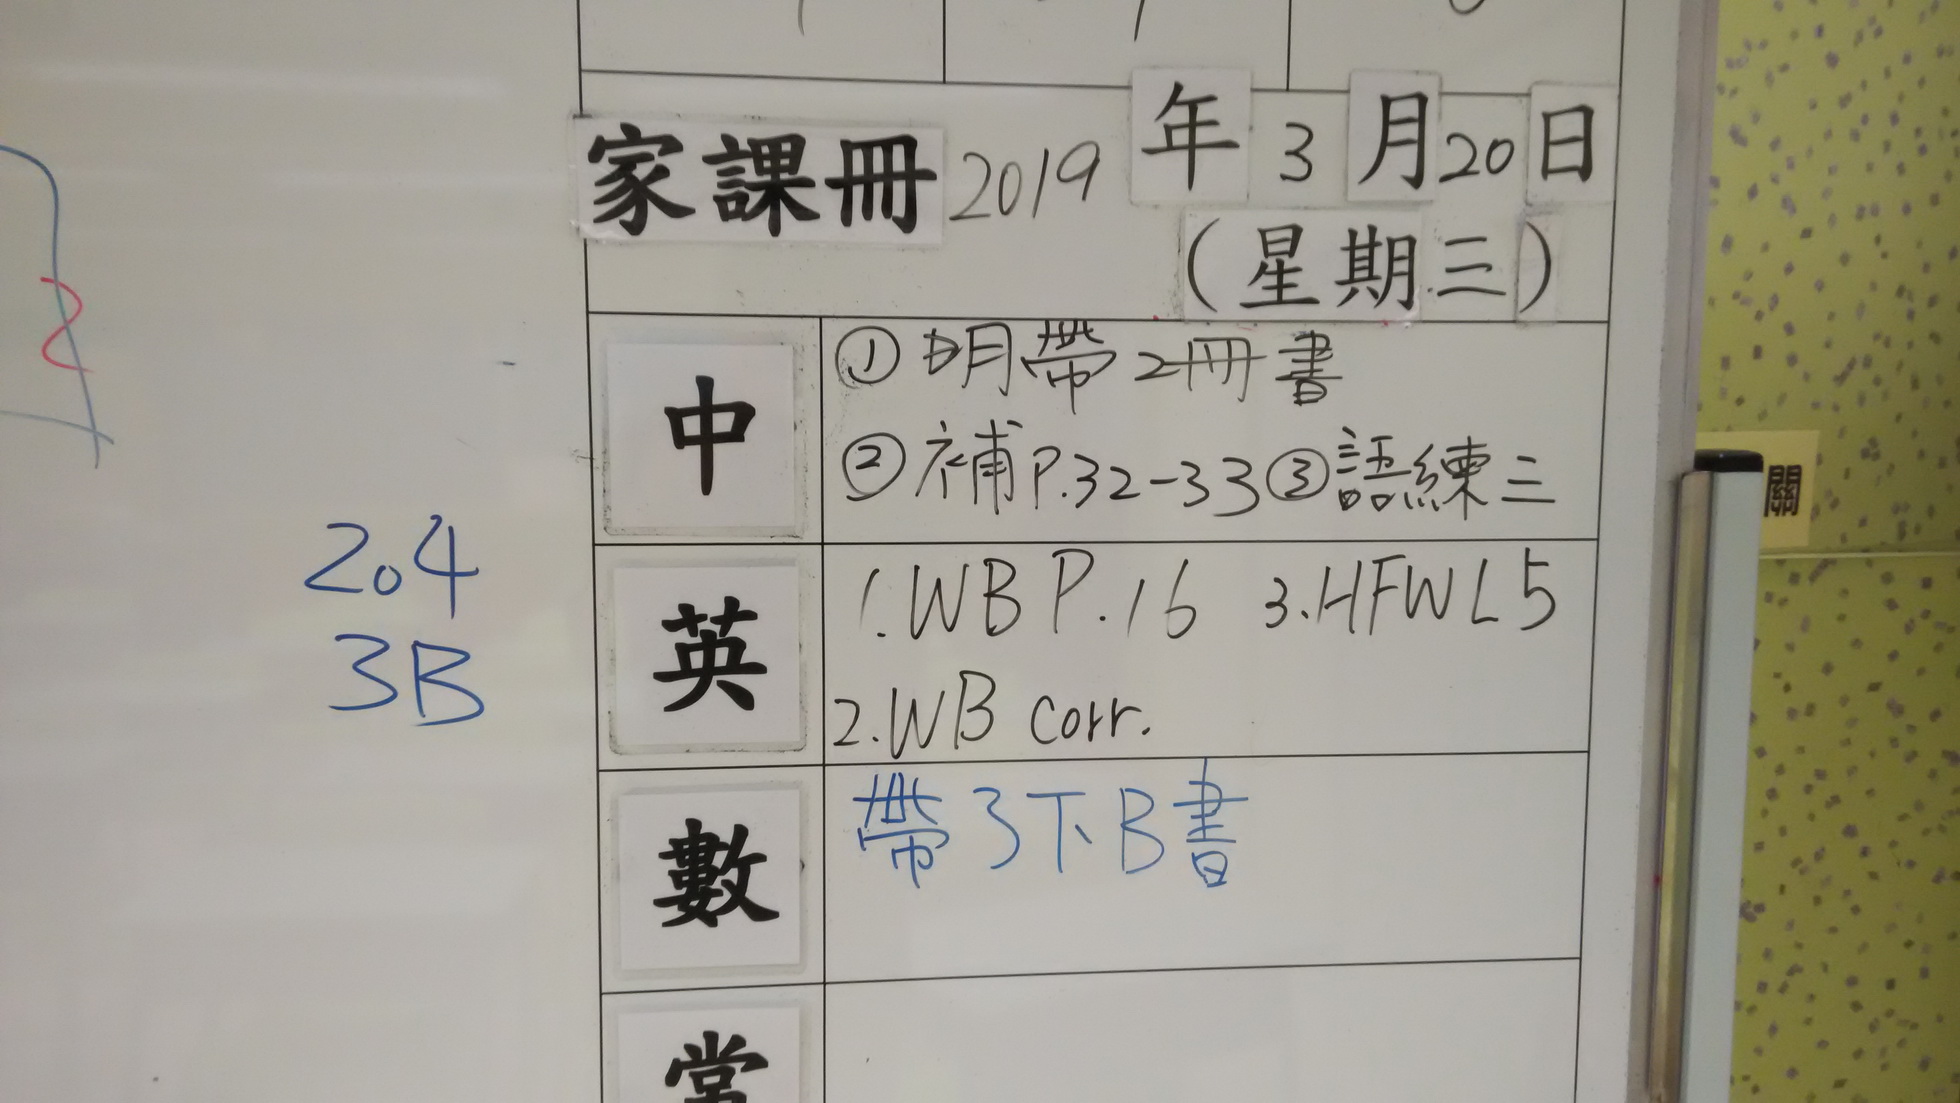 家課冊 2019 年 3 月 20 日
(星期三)
中
① 明帶2冊書
② 補P.32-33 ③ 語練三
英
1.WB P.16 3.HFWL5
2.WB corr.
數
帶3下B書
常
204
3B
關